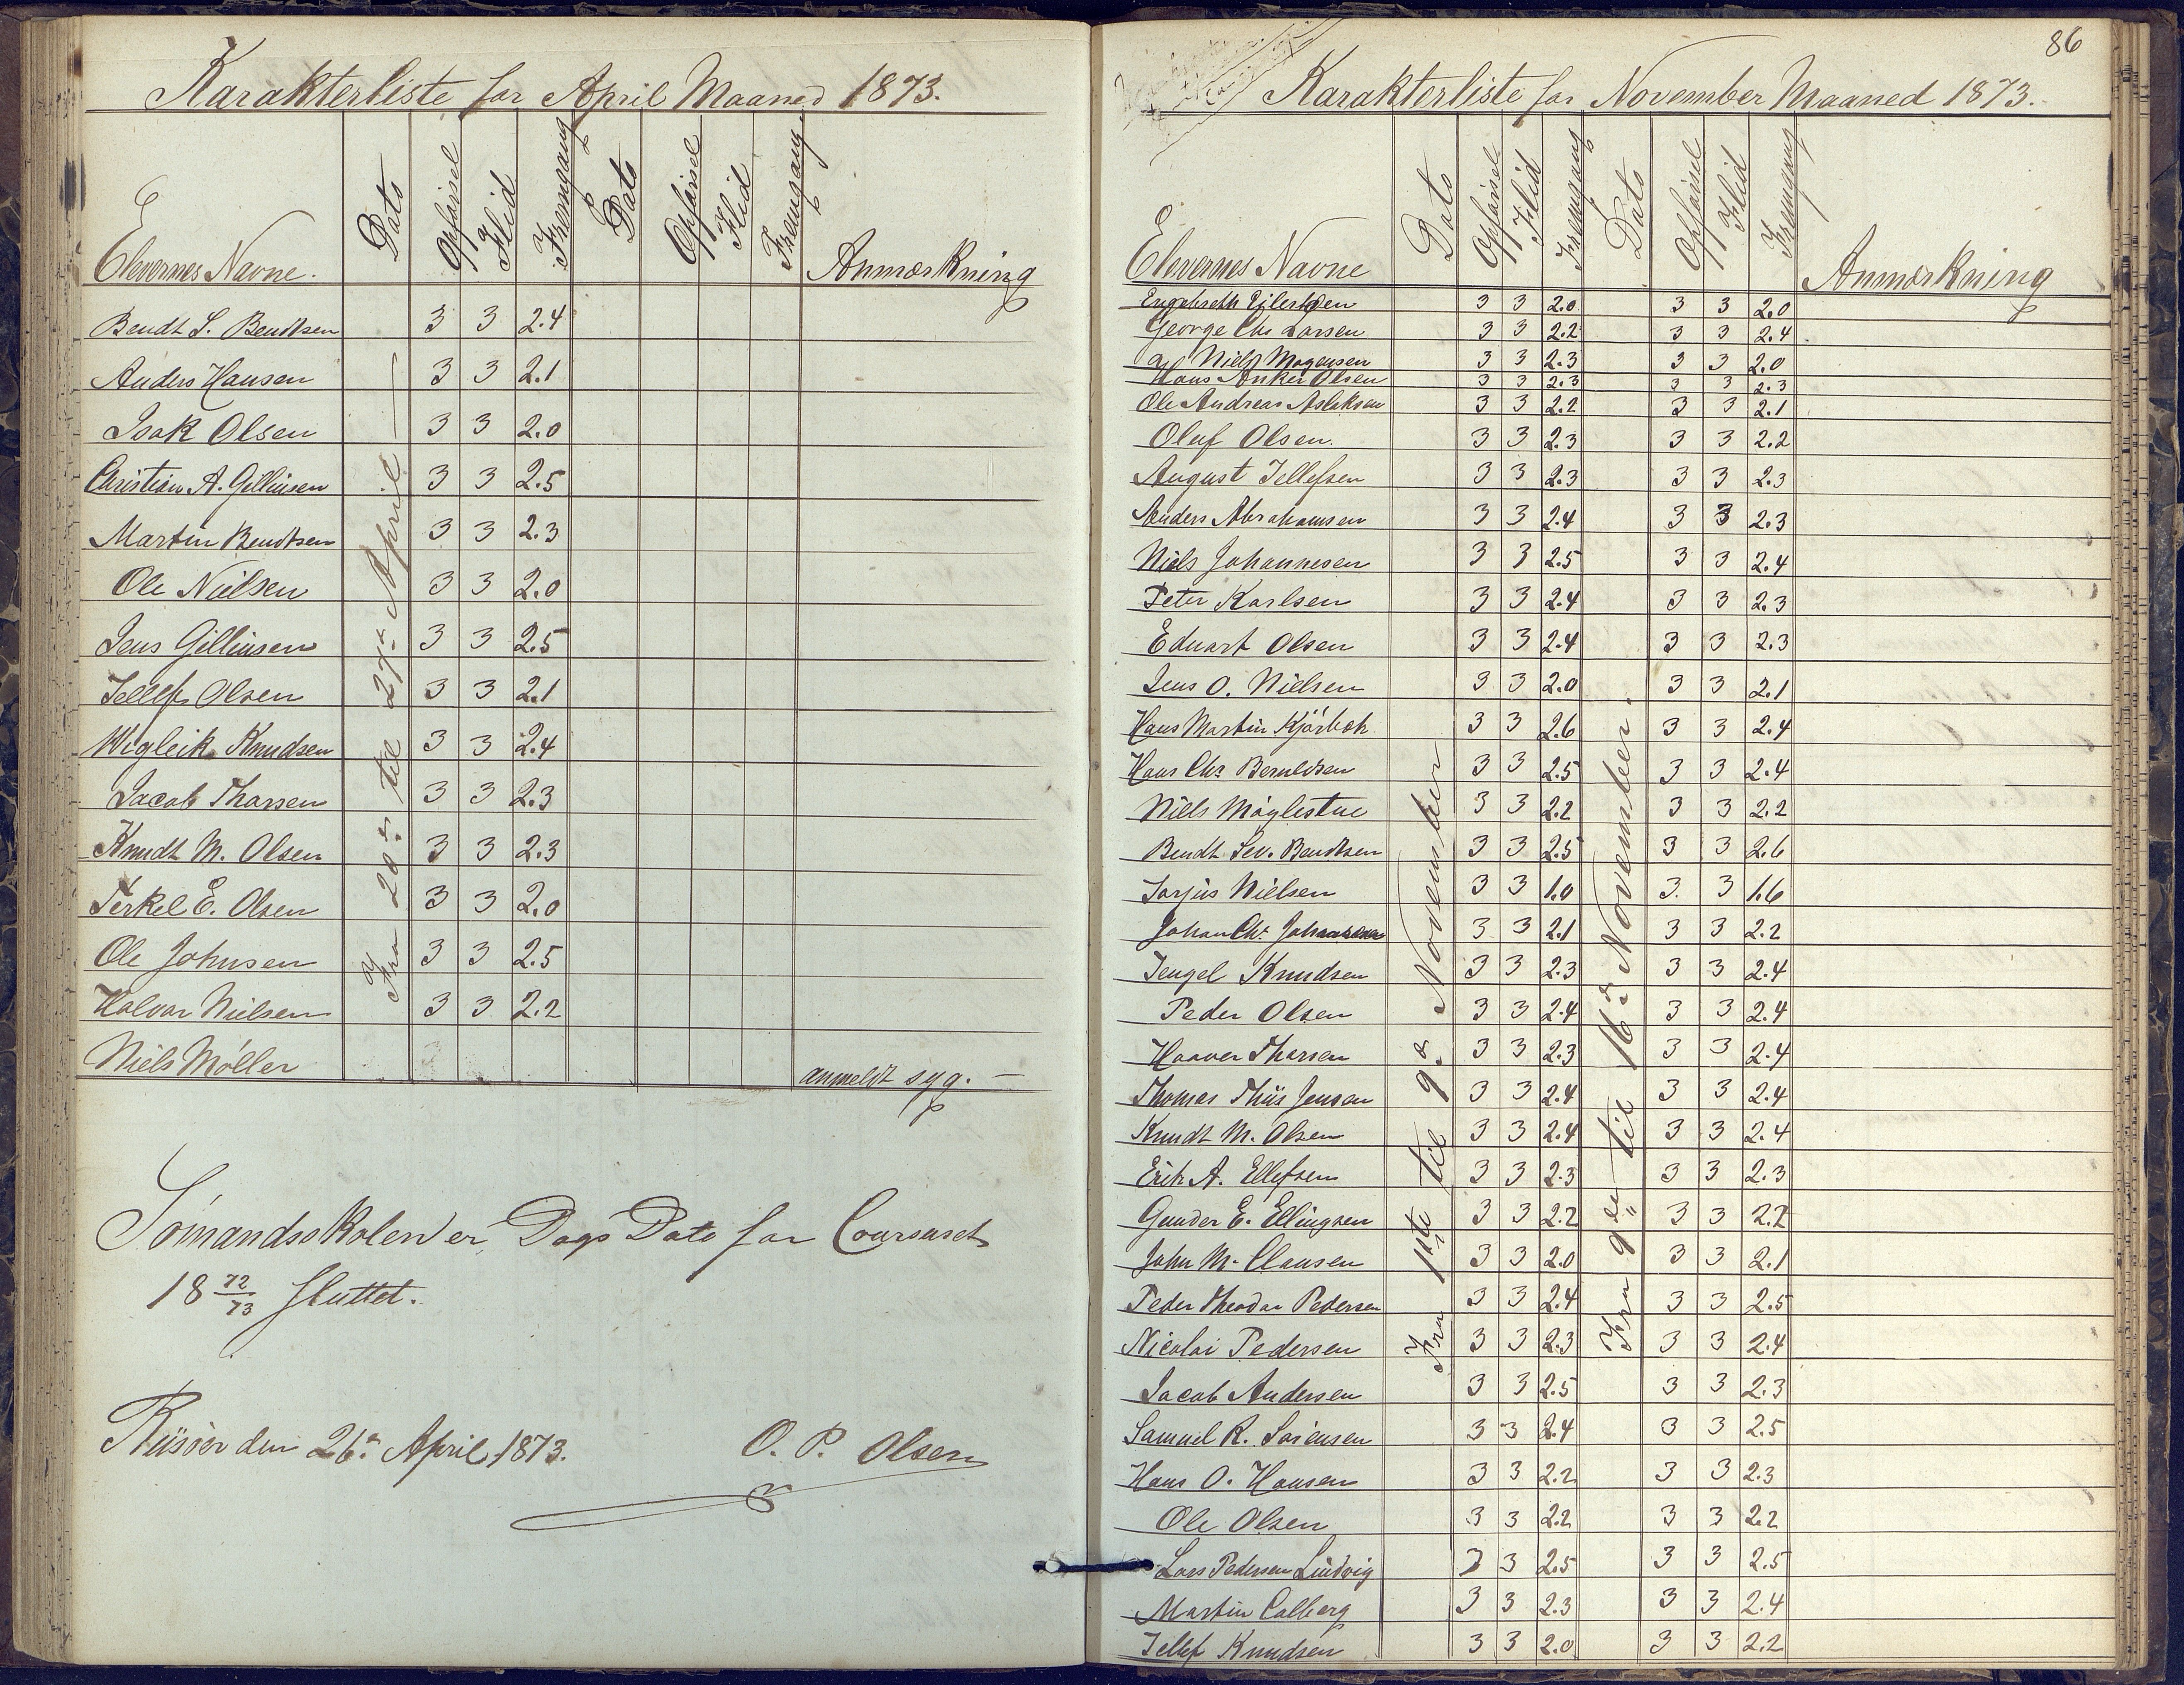 Karakterliste for April Maaned 1873.
Elevernes Navne. Dato Opførsel Flid Fremgang Dato Opførsel Flid Fremgang Anmærkning
Bendt S. Bendtsen 3 3 2.4
Anders Hansen 3 3 2.1
Isak Olsen 3 3 2.0
Christian A. Gillinsen 3 3 2.5
Martin Bendtsen 3 3 2.3
Ole Nielsen 3 3 2.0
Jens Gillinsen 3 3 2.5
Tellef Olsen 3 3 2.1
Wigleik Knudsen 3 3 2.4
Jacob Thorsen 3 3 2.3
Knudt M. Olsen 3 3 2.3
Terkel E. Olsen 3 3 2.0
Ole Johnsen 3 3 2.5
Halvor Nielsen 3 3 2.2
Niels Møller anmeldt syg. —
Fra 20de til 27de April
Sömandsskolen er Dags Dato for Coursuset
18 72/73 sluttet.
Riisöer den 26de April 1873. O. P. Olsen
86
Karakterliste for November Maaned 1873.
Elevernes Navne Dato Opførsel Flid Fremgang Dato Opførsel Flid Fremgang Anmærkning
Engebreth Eilertsen 3 3 2.0 3 3 2.0
George Chr Larsen 3 3 2.2 3 3 2.4
Niels Mogensen 3 3 2.3 3 3 2.0
Hans Anker Olsen 3 3 2.3 3 3 2.3
Ole Andreas Aslaksen 3 3 2.2 3 3 2.1
Oluf Olsen. 3 3 2.3 3 3 2.2
August Tellefsen 3 3 2.3 3 3 2.3
Anders Abrahamsen 3 3 2.4 3 3 2.3
Niels Johannesen 3 3 2.5 3 3 2.4
Peter Karlsen 3 3 2.4 3 3 2.3
Eduart Olsen 3 3 2.4 3 3 2.3
Jens O. Nielsen 3 3 2.0 3 3 2.1
Hans Martin Kjörboh 3 3 2.6 3 3 2.4
Hans Chr. Berntdsen 3 3 2.5 3 3 2.4
Niels Möglestue 3 3 2.2 3 3 2.2
Bendt Sev. Bendtsen 3 3 2.5 3 3 2.6
Jorjus Nielsen 3 3 1.0 3. 3 1.6
Johan Chr. Johannesen 3 3 2.1 3 3 2.2
Tengel Knudsen 3 3 2.3 3 3 2.4
Peder Olsen 3 3 2.4 3 3 2.4
Haaver Thorsen 3 3 2.3 3 3 2.4
Thomas Thiis Jensen 3 3 2.4 3 3 2.4
Knudt M. Olsen 3 3 2.4 3 3 2.4
Erik A. Ellefsen 3 3 2.3 3 3 2.3
Gunder E. Ellingsen 3 3 2.2 3 3 2.2
John M. Clausen 3 3 2.0 3 3 2.1
Peder Theodor Pedersen 3 3 2.4 3 3 2.5
Nicolai Pedersen 3 3 2.3 3 3 2.4
Jacob Andersen 3 3 2.5 3 3 2.3
Samuel R. Sörensen 3 3 2.4 3 3 2.5
Hans O. Hansen 3 3 2.2 3 3 2.3
Ole Olsen 3 3 2.2 3 3 2.2
Lars Pedersen Lindvig 3 3 2.5 3 3 2.5
Martin Calberg 3 3 2.3 3 3 2.4
Tellef Knudsen 3 3 2.0 3 3 2.2
Fra 1ste til 9de November
Fra 9de til 16de November.